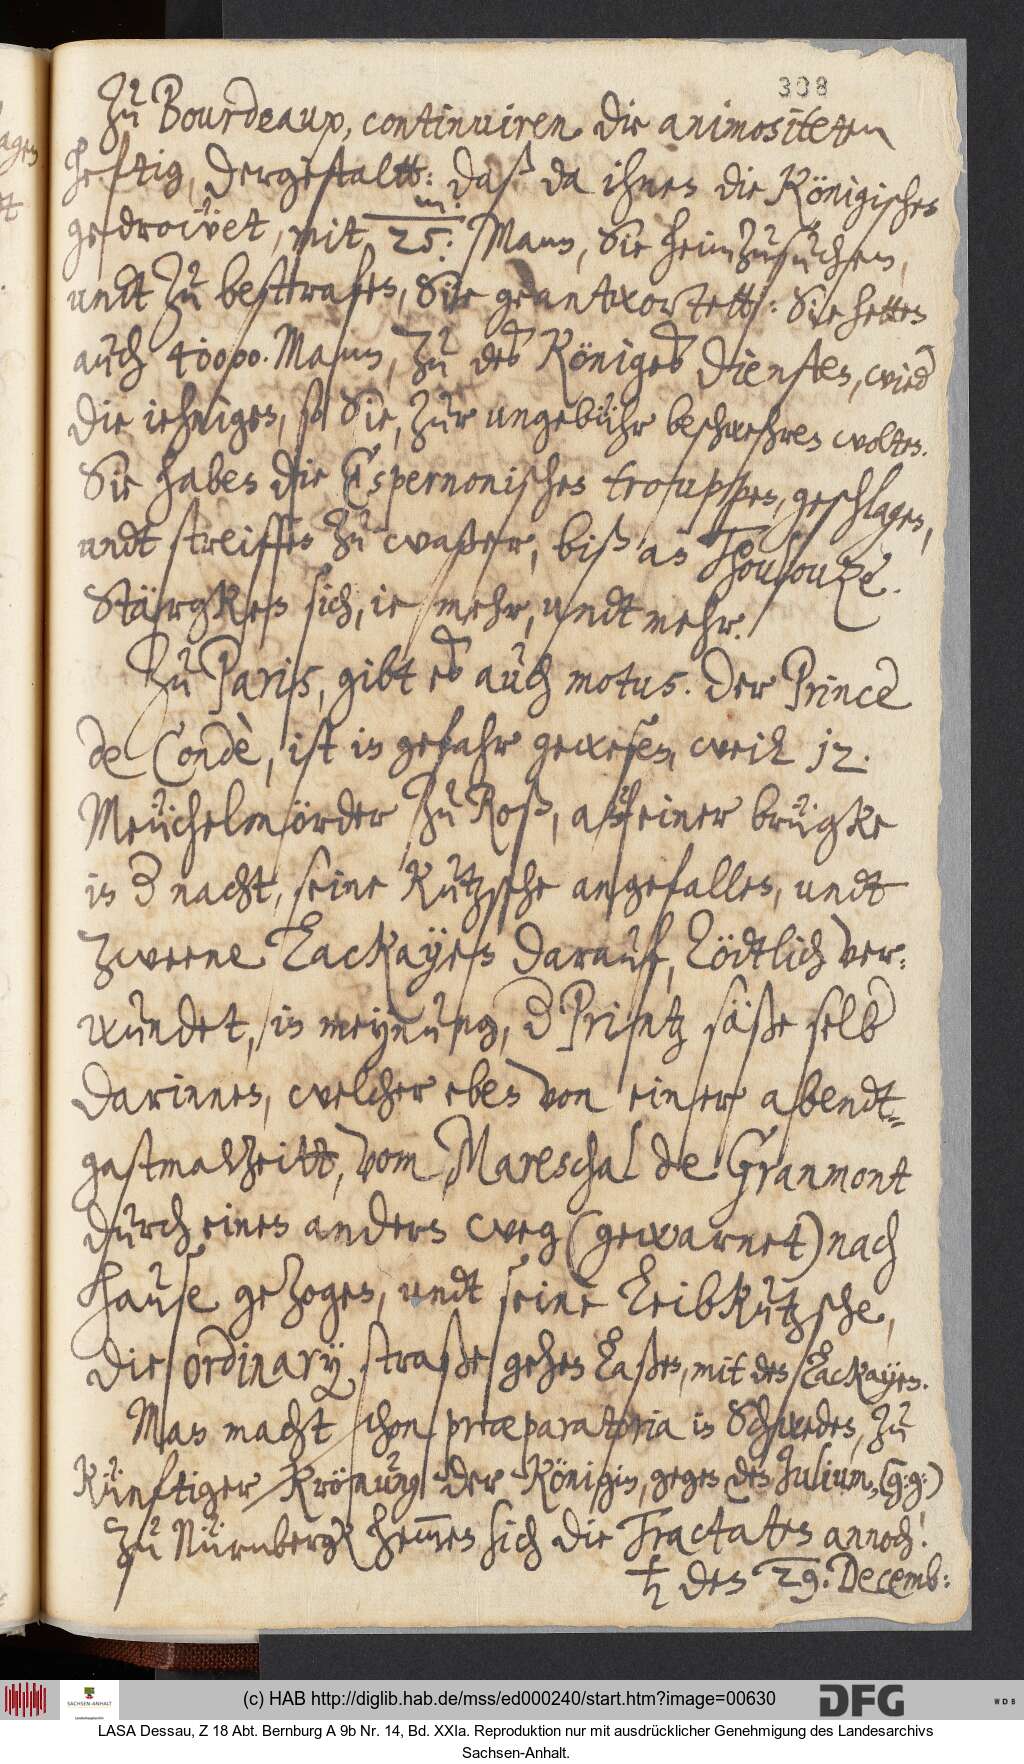 308
Zu Bourdeaux, continuiren die animositeten
heftig, dergestaltt: daß da ihnen die Königischen
gedroẅet, mit 25.m: Mann, Sie heimzusuchen,
undt zu besttrafen, Sie geantwortett: Sie hetten
auch 40000. Mann, zu des Königes diensten, wied
die iehnigen, so Sie, zur ungebühr beschwehren wolten.
Sie haben die Espernonischen trouppen, geschlagen,
undt streiffen zu waßer, biß an Thoulouze.
Stärgken sich, ie mehr, undt mehr.
Zu Paris, gibt es auch motus. Der Prince
de Condè, ist in gefahr gewesen, weil 12.
Meüchelmörder zu Roß, auf einer brügke
in d nacht, seine Kutzsche angefallen, undt
zweene Lackayen darauf, tödtlich ver-
wundet, in meynung, d Printz säße selb
darinnen, welcher eben von einer abendt-
gastmalzeitt, vom Mareschal de Granmont
durch einen andern weg (gewarnet) nach
hause gezogen, undt seine Leibkutzsche,
die ordinary straße gehen laßen, mit den Lackayen.
Man macht schon præparatoria in Schweden, zu
künftiger Krönung der Königin, gegen den Julium, (g: g:)
Zu Nürnbergk hem̄en sich die Tractaten annoch!
♄ den 29. Decemb:
(c) HAB http://diglib.hab.de/mss/ed000240/start.htm?image=00630
DFG
WDB
SACHSEN-ANHALT
LASA Dessau, Z 18 Abt. Bernburg A 9b Nr. 14, Bd. XXIa. Reproduktion nur mit ausdrücklicher Genehmigung des Landesarchivs
Sachsen-Anhalt.